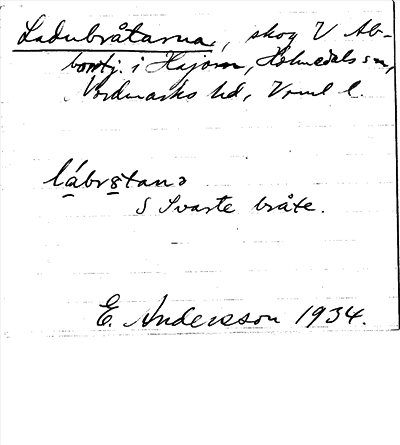 Ladubråtarna, skog V Ab-
borrtj. i Hajom, Holmedals sn,
Nordmarks hd, Vrml l.
lábrstanə
S Svarte bråte.
E. Andersson 1934.